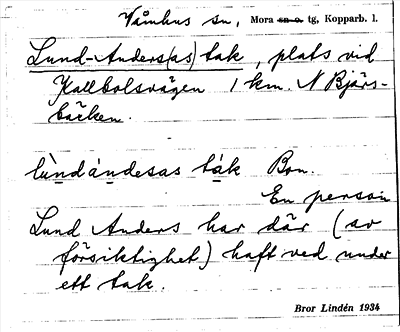 Våmhus sn, Mora sn o. tg, Kopparb. l.
Lund-Anders(as) tak, plats vid
Kallbolsvägen 1 km. N Bjärs-
bäcken.
lùndándesas ták Bon.
En person
Lund Anders har där (av
försiktighet) haft ved under
ett tak.
Bror Lindén 1934